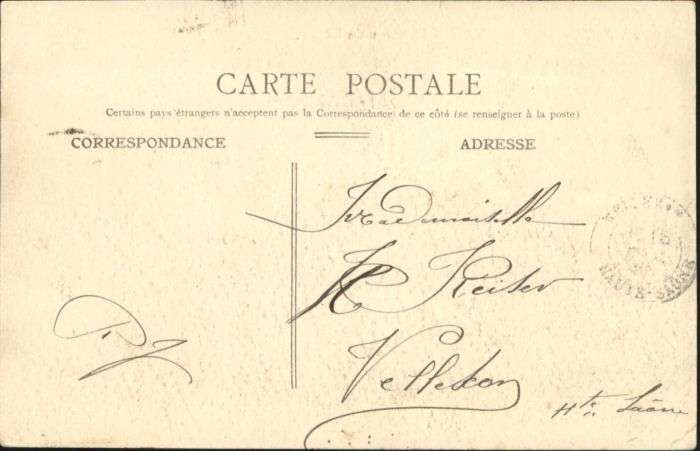 CARTE POSTALE
Certains pays étrangers n'acceptent pas la Correspondance de ce côté (se renseigner à la poste)
CORRESPONDANCE
ADRESSE
Mademoiselle
Keiser
Hte Saône
HAUTE-SAÔNE